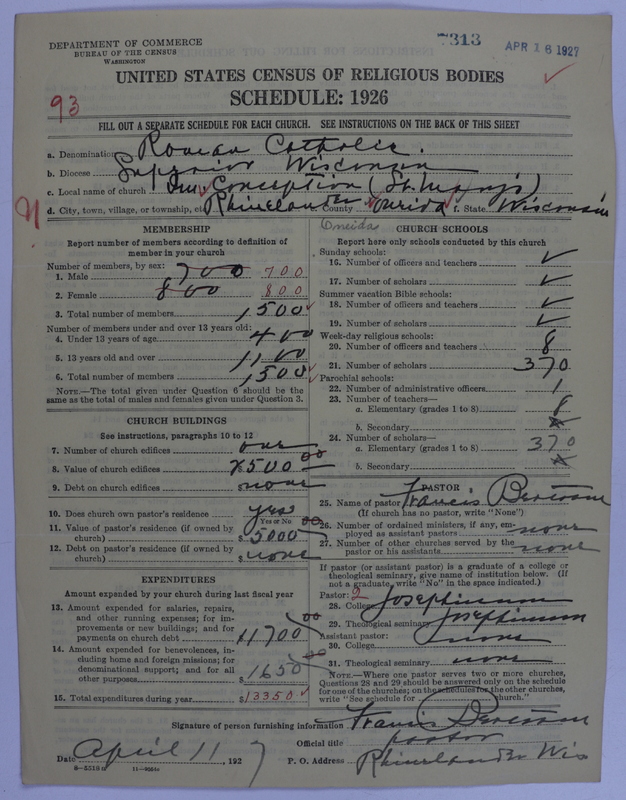 7313
APR 16 1927
DEPARTMENT OF COMMERCE
BUREAU OF THE CENSUS
WASHINGTON
UNITED STATES CENSUS OF RELIGIOUS BODIES
SCHEDULE: 1926
93
FILL OUT A SEPARATE SCHEDULE FOR EACH CHURCH. SEE INSTRUCTIONS ON THE BACK OF THIS SHEET
a. Denomination Roman Catholic.
b. Diocese Superior Wisconsin
c. Local name of church Im. Conception (St. Mary's)
d. City, town, village, or township, etc. Rhinelander County Oneida f. State Wisconsin
Oneida
MEMBERSHIP
Report number of members according to definition of
member in your church
Number of members, by sex:
1. Male 700 700
2. Female 800 800
3. Total number of members 1500
Number of members under and over 13 years old:
4. Under 13 years of age 400
5. 13 years old and over 1100
6. Total number of members 1500
NOTE.—The total given under Question 6 should be the
same as the total of males and females given under Question 3.
CHURCH BUILDINGS
See instructions, paragraphs 10 to 12
7. Number of church edifices one
8. Value of church edifices $ 7500 00
9. Debt on church edifices $ none
10. Does church own pastor's residence yes
Yes or No
11. Value of pastor's residence (if owned by
church) $ 5000 00
12. Debt on pastor's residence (if owned by
church) $ none
EXPENDITURES
Amount expended by your church during last fiscal year
13. Amount expended for salaries, repairs,
and other running expenses; for im-
provements or new buildings; and for
payments on church debt $ 11700 00
14. Amount expended for benevolences, in-
cluding home and foreign missions; for
denominational support; and for all
other purposes $ 1650 00
15. Total expenditures during year $ 13350
CHURCH SCHOOLS
Report here only schools conducted by this church
Sunday schools:
16. Number of officers and teachers
17. Number of scholars
Summer vacation Bible schools:
18. Number of officers and teachers
19. Number of scholars
Week-day religious schools:
20. Number of officers and teachers 8
21. Number of scholars 370
Parochial schools:
22. Number of administrative officers 1
23. Number of teachers—
a. Elementary (grades 1 to 8) 8
b. Secondary
24. Number of scholars—
a. Elementary (grades 1 to 8) 370
b. Secondary
PASTOR
25. Name of pastor Francis
(If church has no pastor, write "None")
26. Number of ordained ministers, if any, em-
ployed as assistant pastors none
27. Number of other churches served by the
pastor or his assistants none
If pastor (or assistant pastor) is a graduate of a college or
theological seminary, give name of institution below. (If
not a graduate, write "No" in the space indicated.)
Pastor: 2
28. College Josephinum
29. Theological seminary Josephinum
Assistant pastor:
30. College none
31. Theological seminary none
NOTE.—Where one pastor serves two or more churches,
Questions 28 and 29 should be answered only on the schedule
for one of the churches; on the schedules for the other churches,
write "See schedule for church."
Signature of person furnishing information Francis
Official title pastor
Date April 11, 1927
P. O. Address Rhinelander Wis
8—5519 a 11—9664